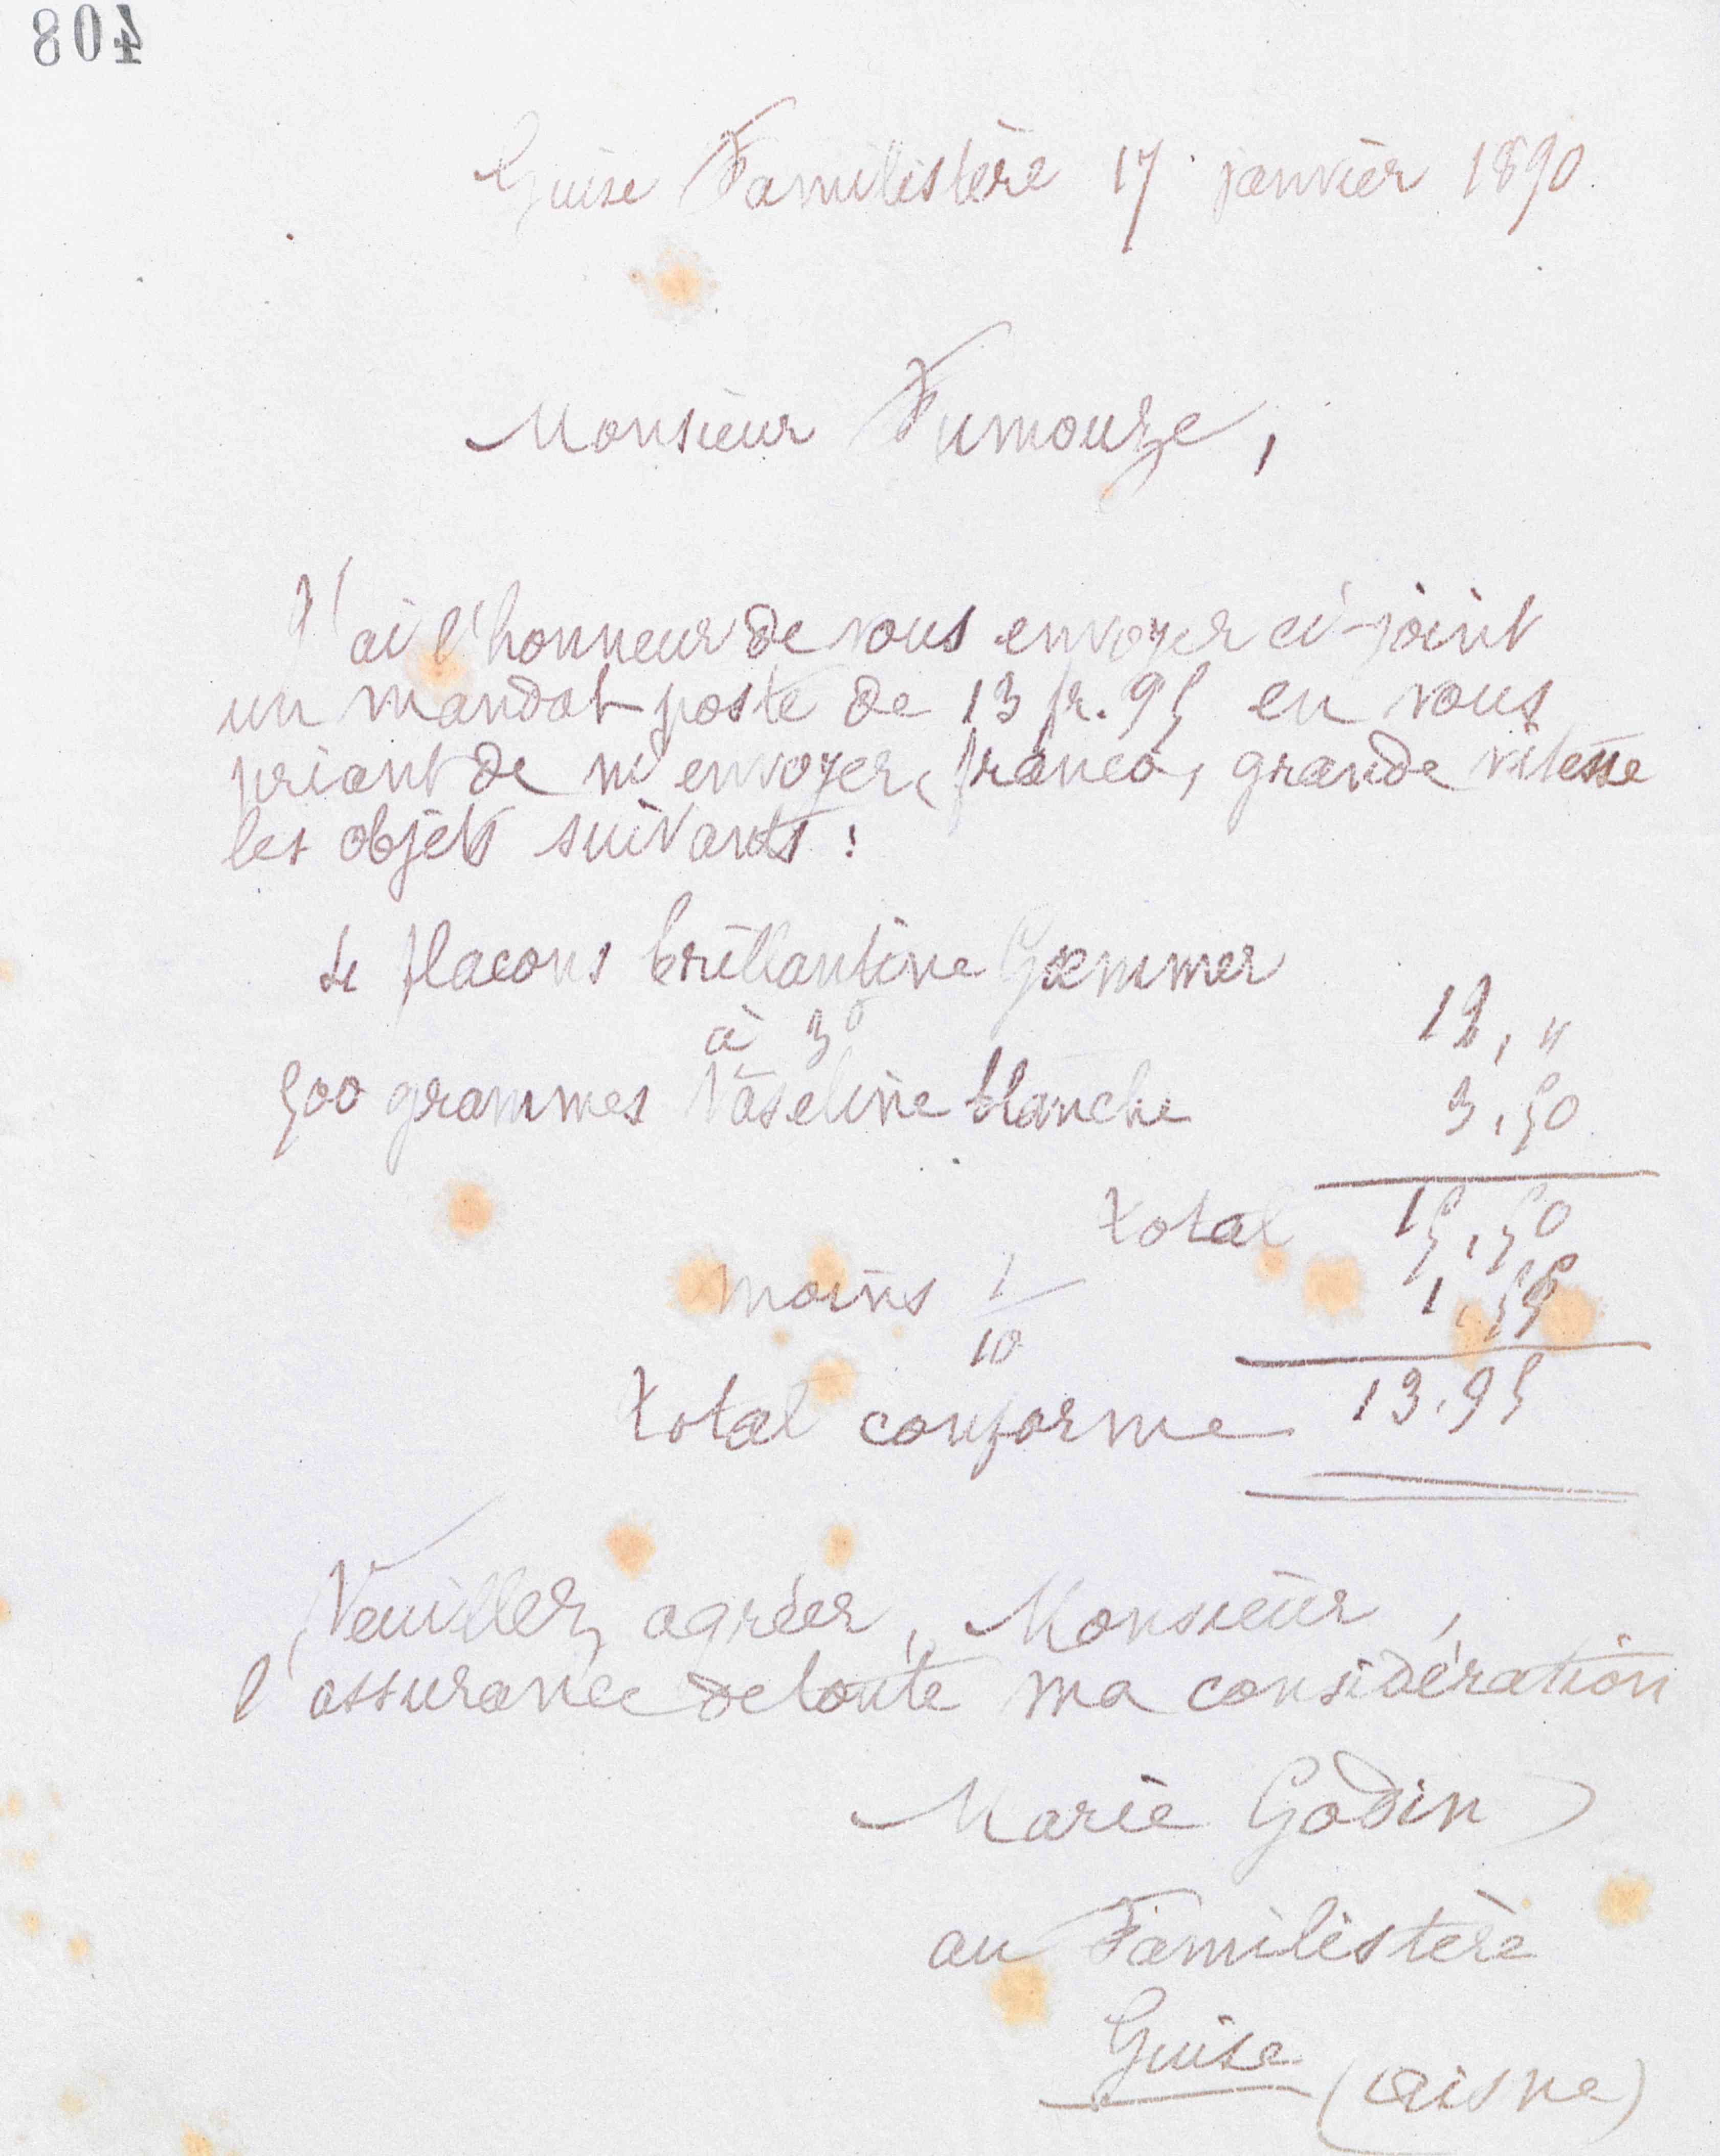 408
Guise Familistère 17 janvier 1890
Monsieur Fumouze,
J'ai l'honneur de vous envoyer ci-joint
un mandat poste de 13 fr. 95 en vous
priant de m'envoyer, franco, grande vitesse
les objets suivants :
4 flacons brillantine Gœmmer
à 3f 12, "
500 grammes Vaseline blanche 3,50
total 15,50
moins 1/10 1,55
total conforme 13.95
Veuillez agréer, Monsieur,
l'assurance de toute ma considération
Marie Godin
au Familistère
Guise (Aisne)